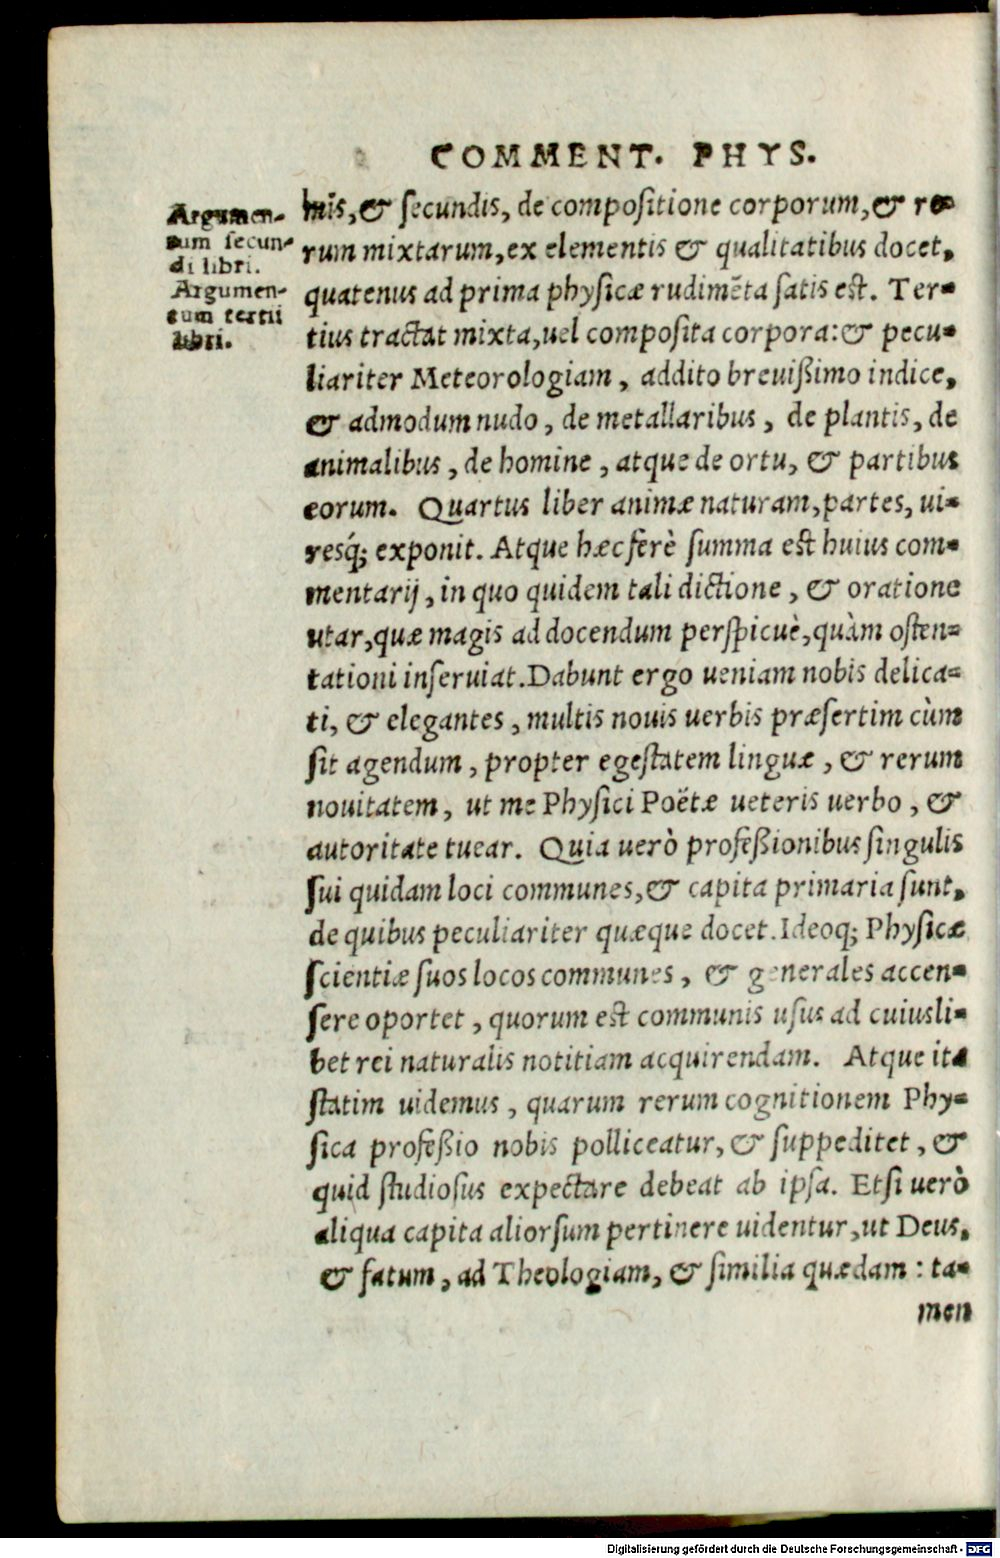 COMMENT. PHYS.
Argumen-
tum secun-
di libri.
Argumen-
tum tertii
libri.
mis, & ſecundis, de compoſitione corporum, & re-
rum mixtarum, ex elementis & qualitatibus docet,
quatenus ad prima phyſicæ rudimẽta ſatis eſt. Ter-
tius tractat mixta, uel compoſita corpora: & pecu-
liariter Meteorologiam, addito breuißimo indice,
& admodum nudo, de metallaribus, de plantis, de
animalibus, de homine, atque de ortu, & partibus
eorum. Quartus liber animæ naturam, partes, ui-
resq́; exponit. Atque hæc ferè ſumma eſt huius com-
mentarij, in quo quidem tali dictione, & oratione
utar, quæ magis ad docendum perſpicuè, quàm oſten-
tationi inſeruiat. Dabunt ergo ueniam nobis delica-
ti, & elegantes, multis nouis uerbis præſertim cùm
ſit agendum, propter egeſtatem linguæ, & rerum
nouitatem, ut me Phyſici Poëtæ ueteris uerbo, &
autoritate tuear. Quia uerò profeßionibus ſingulis
ſui quidam loci communes, & capita primaria ſunt,
de quibus peculiariter quæque docet. Ideoq; Phyſicæ
ſcientiæ ſuos locos communes, & generales accen-
ſere oportet, quorum eſt communis uſus ad cuiusli-
bet rei naturalis notitiam acquirendam. Atque ita
ſtatim uidemus, quarum rerum cognitionem Phy-
ſica profeßio nobis polliceatur, & ſuppeditet, &
quid ſtudioſus expectare debeat ab ipſa. Etſi uerò
aliqua capita aliorſum pertinere uidentur, ut Deus,
& fatum, ad Theologiam, & ſimilia quædam: ta-
men
Digitalisierung gefördert durch die Deutsche Forschungsgemeinschaft - DFG